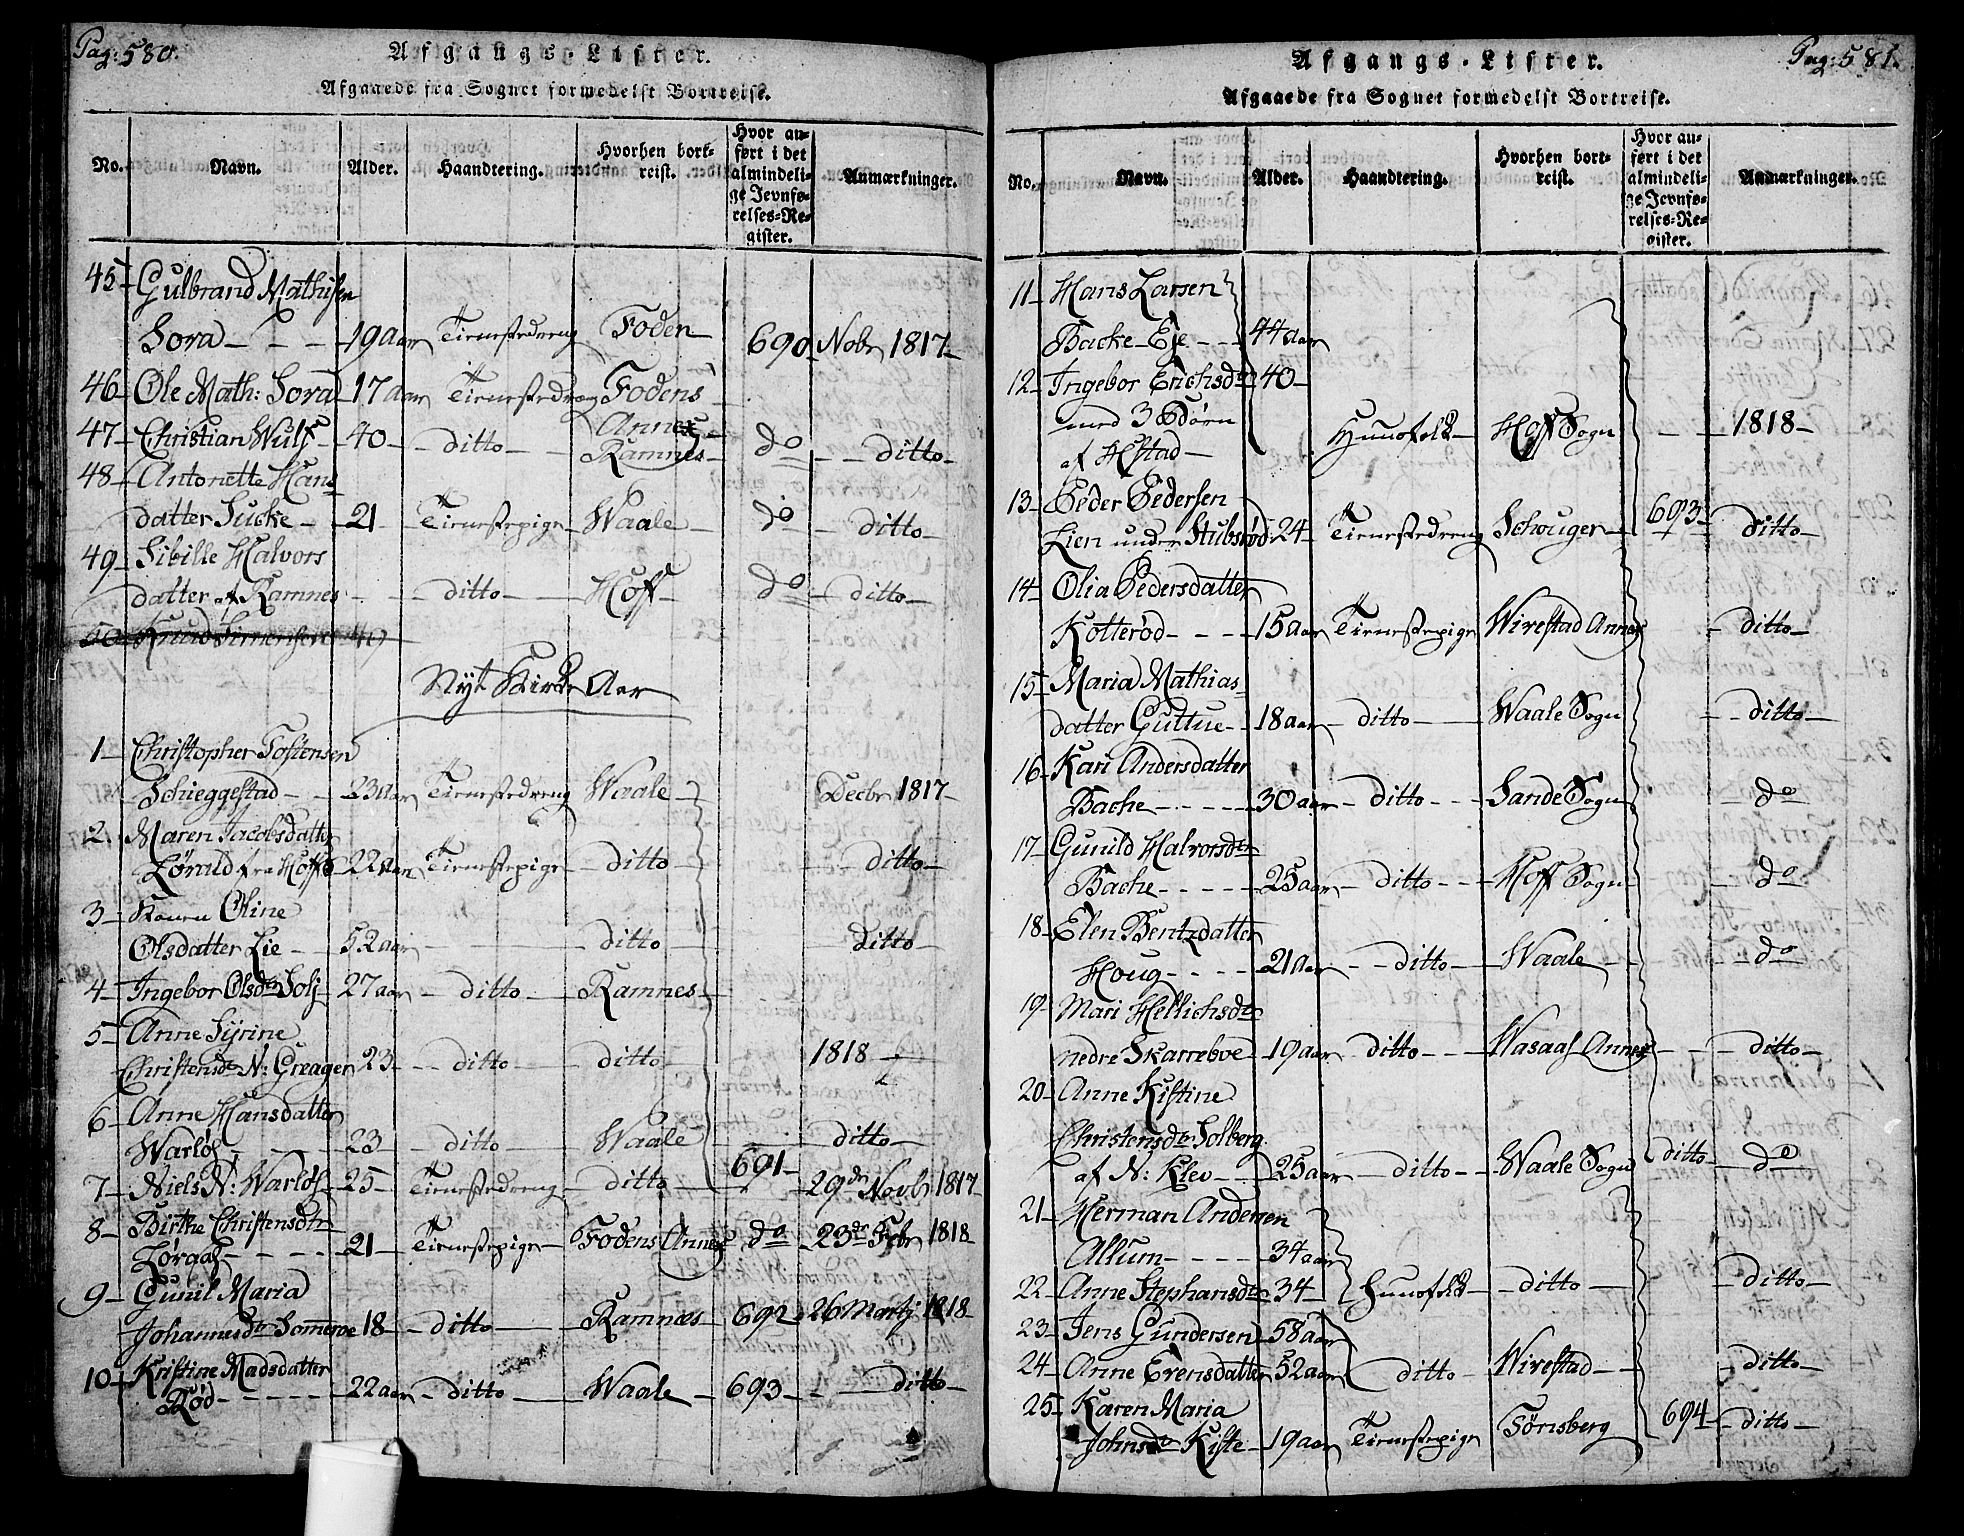 Pag: 580.
Afgangs-Lister.
Afgaaede fra Sognet formedelst Bortreise.
No. Navn. Alder. Haandtering. Hvorhen bortreist. Hvor anført i det almindelige Jevnførelses-Register. Anmærkninger.
45 Gulbrand Mathisen
Sora - - - 19 aar Tienestedreng Foden 690 Nobr 1817
46 Ole Math: Sora 17 aar Tienestedreng Fodens
Annex
47 Christian Wulf 40 ditto Ramnes do ditto
48 Antonette Hans
datter Sucke 21 Tienestepige Waale do ditto
49 Sibille Halvors
datter af Ramnes - ditto Hoff do ditto
50 Knud Simensen 40
Nyt Kirke Aar
1 Christopher Tostensen
Schieggestad 23 aar Tienestedreng Waale Decbr 1817
2 Maren Jacobsdatter
Lørud fra Hoff 22 aar Tienestepige ditto ditto
3 Konen Oline
Olsdatter Lie 52 aar ditto ditto
4 Ingebor Olsdr Solj 27 aar ditto Ramnes
5 Anne Syrine
Christensdr N: Greager 23 ditto ditto 1818
6 Anne Hansdatter
Warløs 23 ditto Waale ditto
691
7 Niels N: Warløs 25 Tienestedreng ditto 29de Novbr 1817
8 Birthe Christensdtr
21 Tienestepige Fodens Annex do 23de Febr 1818
9 Gunil Maria
Johannesdr Somerøe 18 ditto Ramnæs 692 26 Martj 1818
10 Kristine Madsdatter
Rød 22 aar ditto Waale 693 ditto
Pag: 581.
Afgangs-Lister.
Afgaaede fra Sognet formedelst Bortreise.
No. Navn. Alder. Haandtering. Hvorhen bortreist. Hvor anført i det almindelige Jevnførelses-Register. Anmærkninger.
11 Hans Larsen
Backe Eje 44 aar
12 Ingebor Erichsdr 40
med 3 Børn Huusfolk Hoff Sogn 1818
af Hstad
13 Peder Pedersen
Lien under Stubsrød 24 Tienestedreng Schouger 693 ditto
14 Olia Pedersdatter
Kotterød 15 aar Tienestepige Wirestad Annex ditto
15 Maria Mathias
datter Guttue 18 aar ditto Waale Sogn ditto
16 Kari Andersdatter
Bache 30 aar ditto Sande Sogn do
17 Gunild Halvorsdr
Bache 25 aar ditto Hoff Sogn do
18 Elen Bentzdatter
Houg 21 aar ditto Waale do
19 Mari Hellichsdr
nedre Skarreboe 19 aar ditto Wasaas Annex ditto
20 Anne Kistine
Christensdr Solberg
af N: Klev 25 aar ditto Waale Sogn ditto do
21 Herman Andersen
Allum 34 aar
22 Anne Stephansdr 34 Huusfolk ditto ditto
23 Jens Gundersen 58 aar
24 Anne Erensdatter 52 aar ditto Wirestad ditto
25 Karen Maria
Johnsdr Kiste 19 aar Tienestepige Tørnsberg 694 ditto